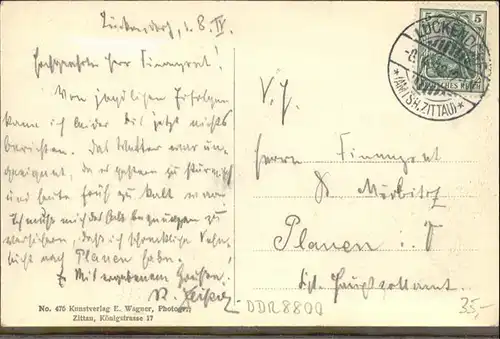 Lückendorf, d. 8. IV.
Hochgeehrter Herr Finanzrat!
Von jagdlichen Erfolgen
kann ich leider bis jetzt nichts
berichten. Das Wetter war un-
geeignet, da es gestern zu stürmisch
und heute früh zu kalt war.
Ich muß mich deshalb begnügen zu
versichern, daß ich schreckliche Sehn-
sucht nach Plauen habe.
Mit ergebenem Grüßen
No. 476 Kunstverlag E. Wagner, Photograf
Zittau, Königstrasse 17
LÜCKENDORF
*(AMTSH. ZITTAU)*
5 5
DEUTSCHES REICH
Herrn Finanzrat
Plauen i. V
Hauptzollamt.
DDR8800
35,-